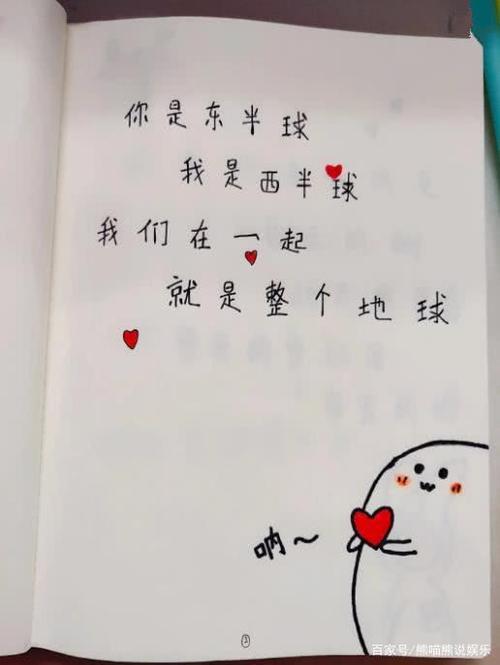 你是东半球
我是西半球
我们在一起
就是整个地球
呐～
②
百家号/熊喵熊说娱乐